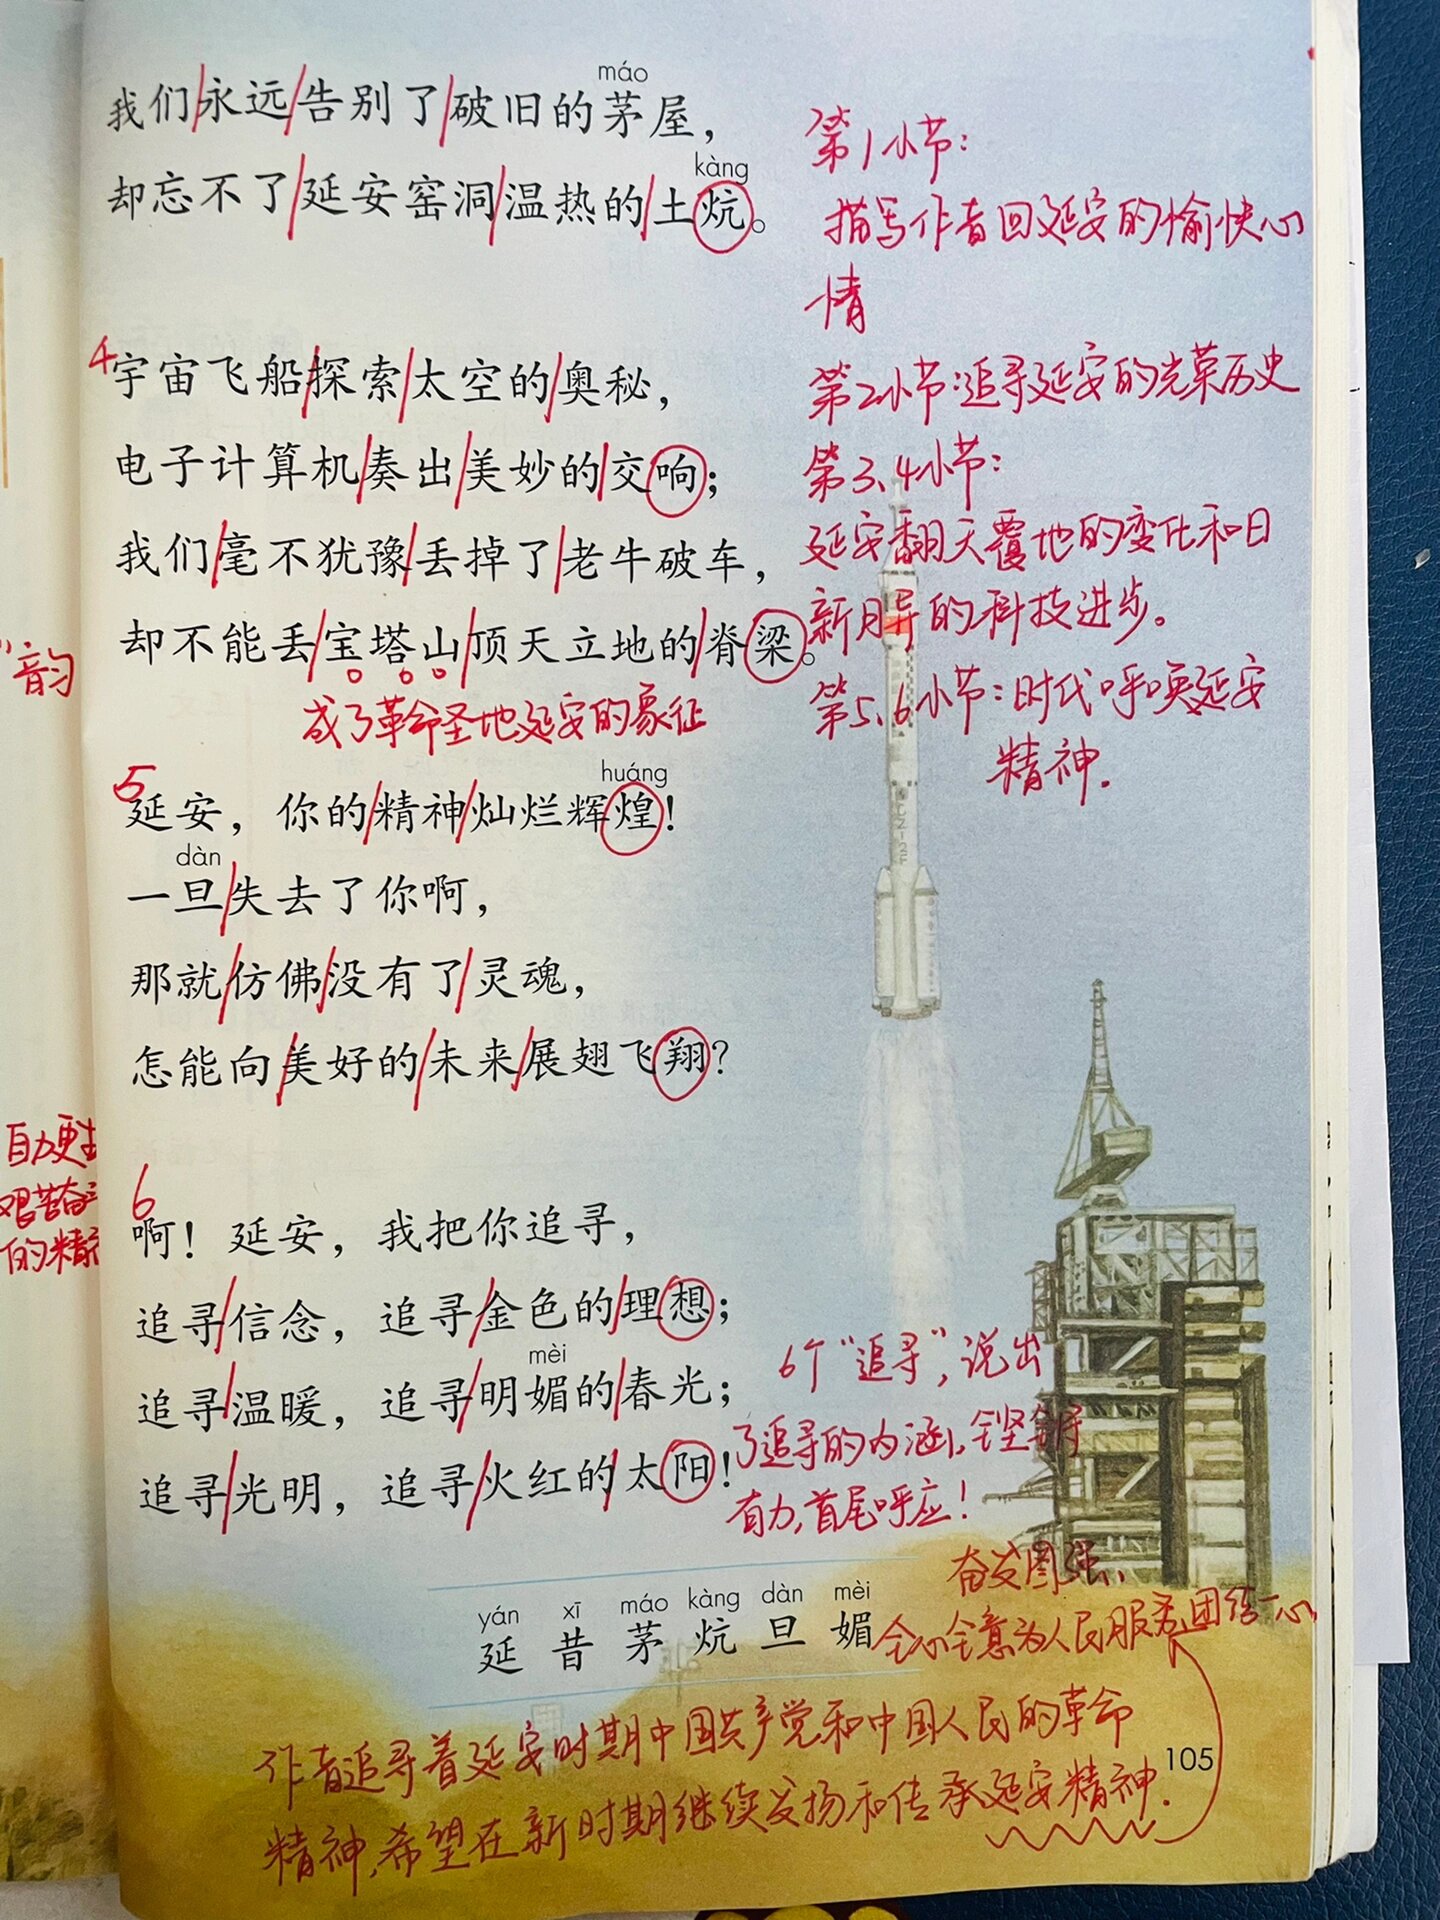 máo
我们永远告别了破旧的茅屋，
kàng
却忘不了延安窑洞温热的土炕。
4
宇宙飞船探索太空的奥秘，
电子计算机奏出美妙的交响；
我们毫不犹豫丢掉了老牛破车，
却不能丢宝塔山顶天立地的脊梁。
成了革命圣地延安的象征
5
huáng
延安，你的精神灿烂辉煌！
dàn
一旦失去了你啊，
那就仿佛没有了灵魂，
怎能向美好的未来展翅飞翔？
6
啊！延安，我把你追寻，
追寻信念，追寻金色的理想；
mèi
追寻温暖，追寻明媚的春光；
追寻光明，追寻火红的太阳！
第1小节：
描写作者回延安的愉快心
情
第2小节：追寻延安的光荣历史
第3、4小节：
延安翻天覆地的变化和日
新月异的科技进步。
第5、6小节：时代呼唤延安
精神.
CZ-2F
6个“追寻”，说出
了追寻的内涵，铿锵
有力，首尾呼应！
奋发图强、
全心全意为人民服务、团结一心
yán xī máo kàng dàn mèi
延 昔 茅 炕 旦 媚
作者追寻着延安时期中国共产党和中国人民的革命
精神，希望在新时期继续发扬和传承延安精神.
105
”韵
自力更生
艰苦奋
的精神